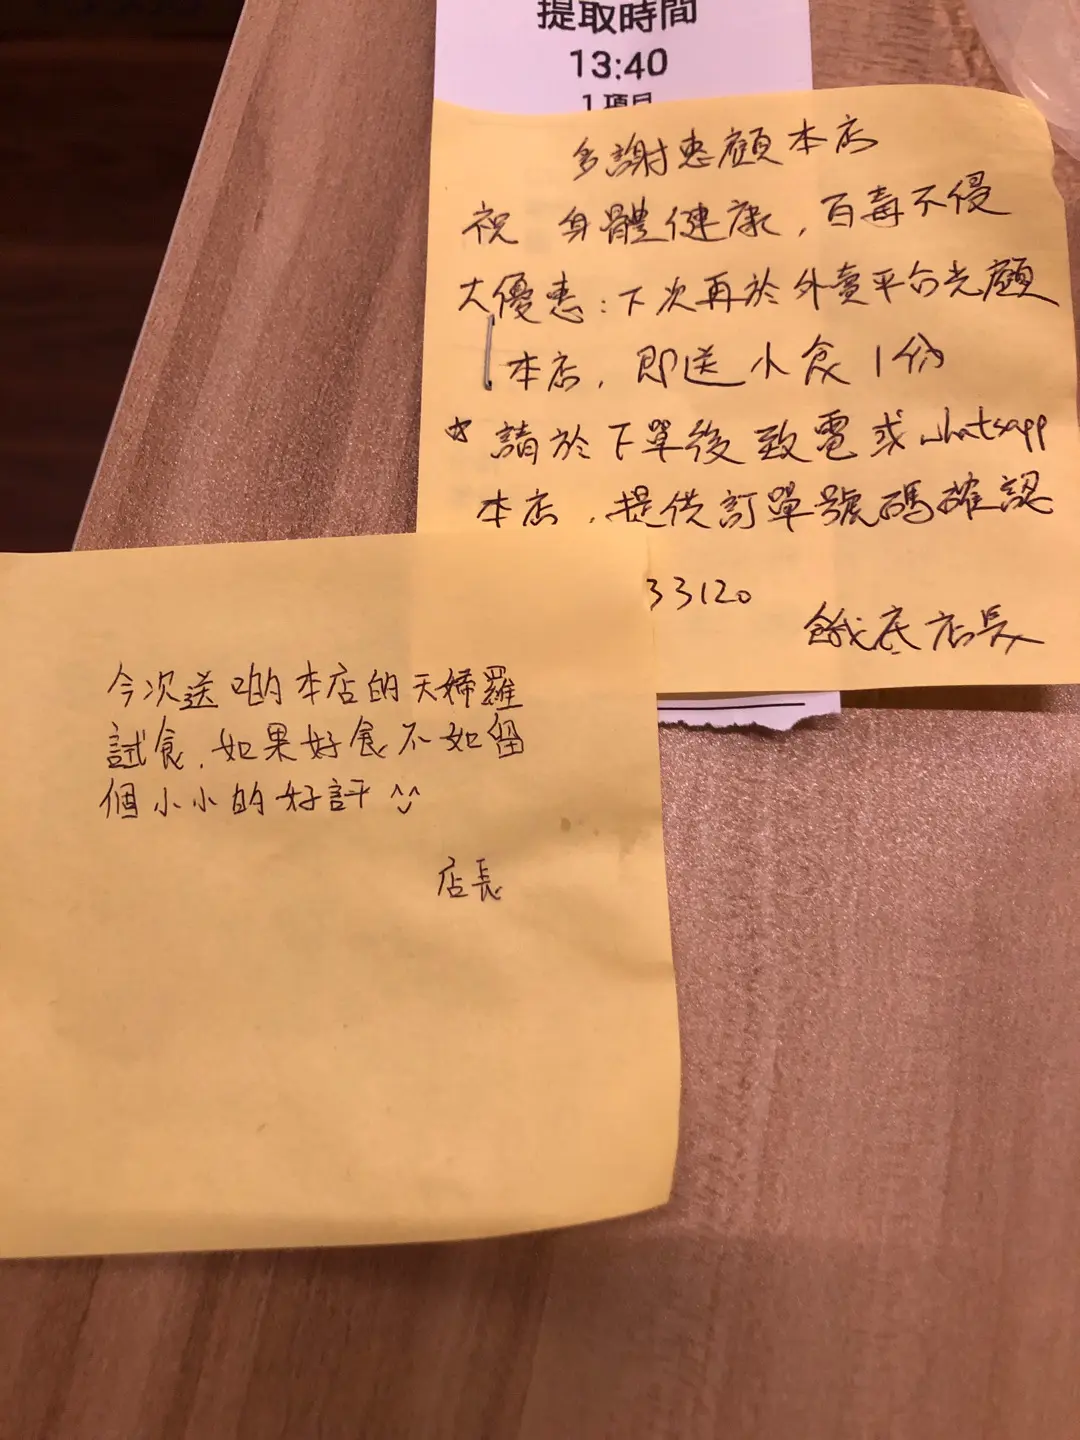 提取時間
13:40
1 項目
多謝惠顧本店
祝 身體健康，百毒不侵
大優惠：下次再於外賣平台光顧
本店，即送小食1份
* 請於下單後致電或whatsapp
本店，提供訂單號碼確認
33120
餓底店長
今次送啲本店的天婦羅
試食，如果好食不如留
個小小的好評 ^^
店長